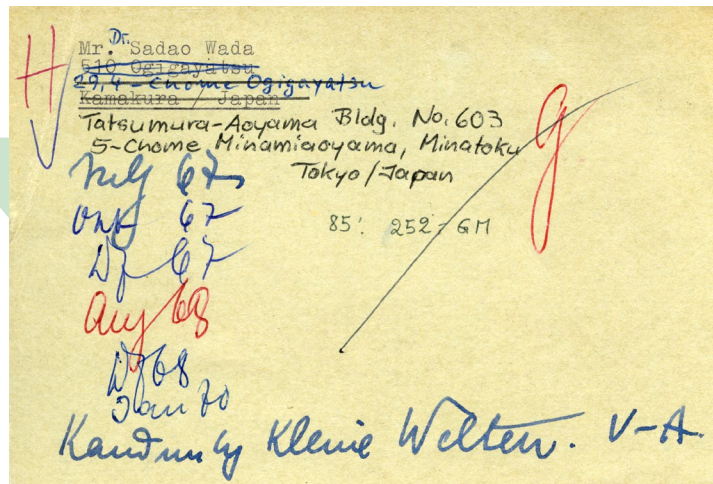 H
Mr. Dr. Sadao Wada
510 Ogigayatsu
29,4-Chome Ogigayatsu
Kamakura / Japan
Tatsumura-Aoyama Bldg. No. 603
5-Chome Minamiaoyama, Minatoku
Tokyo/Japan
67
85: 252,- GM
67
67
Aug 68
68
Jan 70
Kandinsky Kleine Welten. V-A.
g